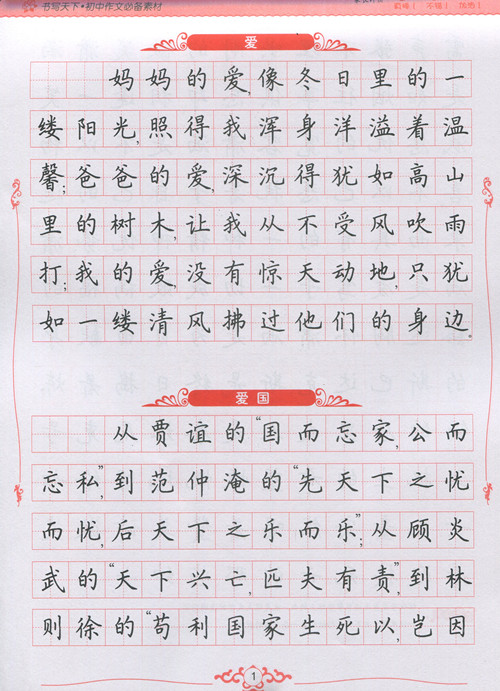 书写天下·初中作文必备素材
爱
妈妈的爱,像冬日里的一
缕阳光,照得我浑身洋溢着温
馨;爸爸的爱,深沉得犹如高山
里的树木,让我从不受风吹雨
打;我的爱,没有惊天动地,只犹
如一缕清风拂过他们的身边。
爱国
从贾谊的“国而忘家,公而
忘私”,到范仲淹的“先天下之忧
而忧,后天下之乐而乐”;从顾炎
武的“天下兴亡,匹夫有责”,到林
则徐的“苟利国家生死以,岂因
1